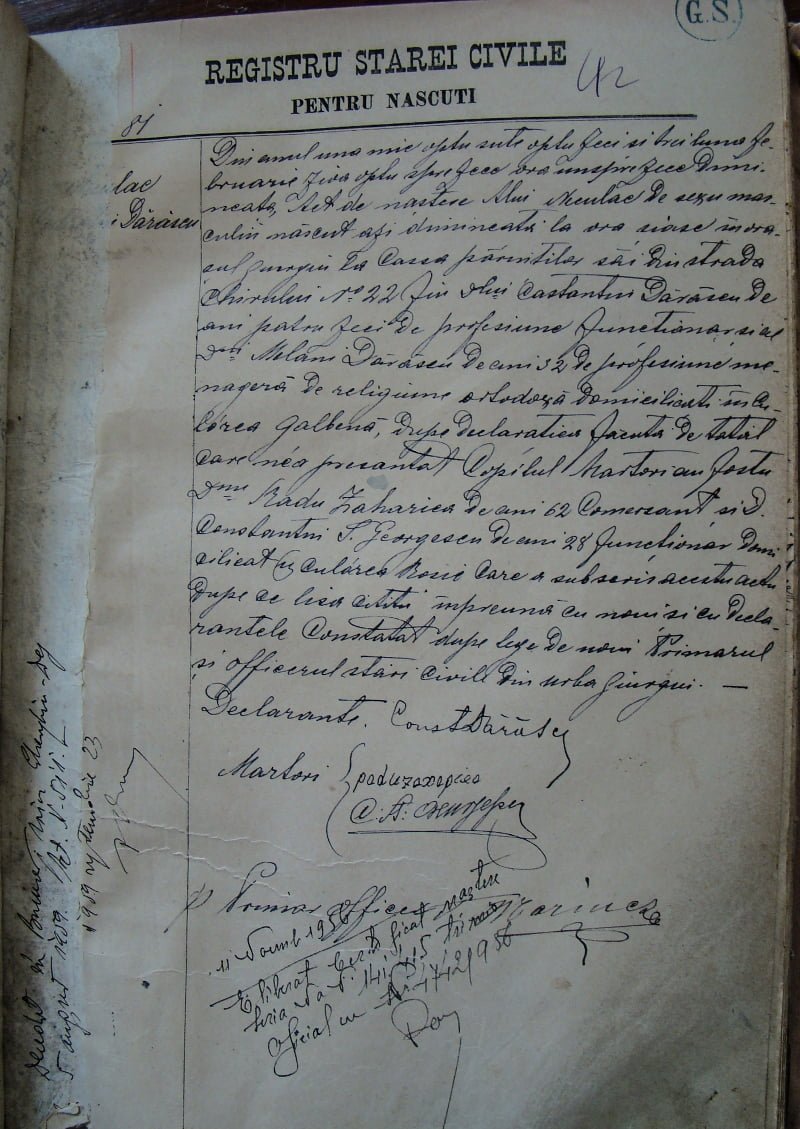 G.S.
REGISTRU STAREI CIVILE
PENTRU NASCUTI
42
81
lac
i Dărăscu
Din anul una mie optu sute optu zeci si trei luna fe-
bruarie ziva optu spre zece ora unspre zece dimi-
neața, Act de nastere Alui Neculae de sexu mas-
culin născut azi dimineață la ora siase in ora-
sul Giurgiu la Cassa părintilor săi din strada
No 22 fiu Dlui Costantin Dărăscu de
ani patru zeci de profesiune functionar si al
Dnei Melani Dărăscu de ani 32 de profesiune me-
nageră de religiune ortodoxă domiciliati in Cu-
lórea Galbenă, dupe declaratiea facuta de tatal
care nea presantat Copilul Martori au fostu
Dnu Radu Zaharica de ani 62 Comersant si D.
Constantin S. Georgescu de ani 28 functionar domi
ciliat cu culórea Rosie care a subscris acestu actu
dupe ce lisa cititu inpreună cu noui si cu decla-
rantele Constatat dupe lege de noui Primarul
și officerul stări civile din urba Giurgiu. —
Declarante. Const Dărăsc
Martori
p Primar officer
11 1956
Eliberat Certificat naștere
Seria
oficial cu Nr. 4742/956
august 1959.
1959 septembrie 23